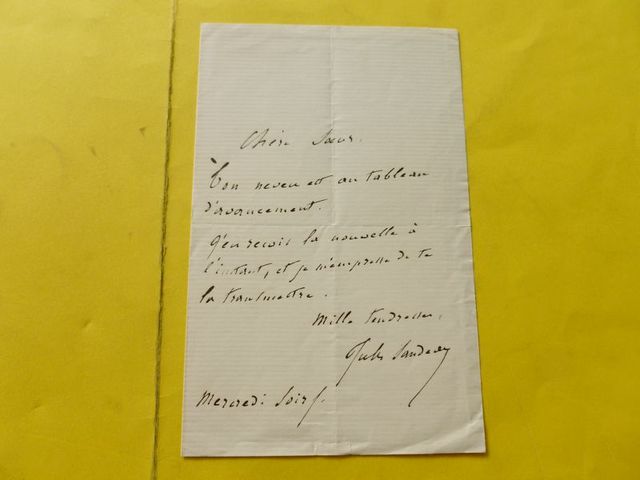 Chère Sœur,
Ton neveu est au tableau
d'avancement.
J'en reçois la nouvelle à
l'instant, et je m'empresse de te
la transmettre.
Mille tendresses,
Jules Sandeau
Mercredi Soir